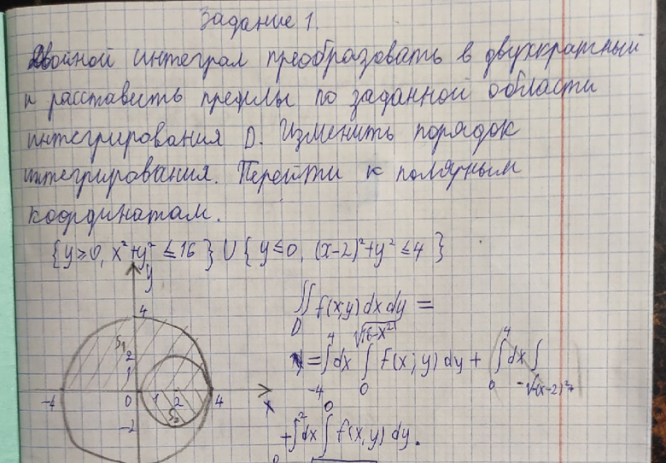 Задание 1.
Двойной интеграл преобразовать в двухкратный
и расставить пределы по заданной области
интегрирования D. Изменить порядок
интегрирования. Перейти к полярным
координатам.
{y≥0, x²+y² ≤16} U { y≤0, (x-2)²+y² ≤4 }
y
4
S₁
2
1
-4 0 1 2 4 x
S₂
-2
∬ f(x,y) dx dy =
D
√16-x²
4 4
= ∫ dx ∫ f(x; y) dy + ∫ dx ∫
-4 0 0 -√-(x-2)²+
2 0
+ ∫ dx ∫ f(x, y) dy.
0